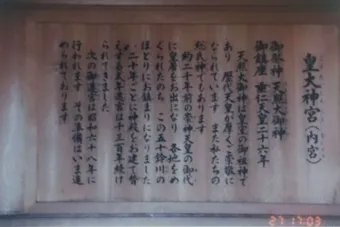 皇大神宮(内宮)
御祭神 天照大御神
御鎮座 垂仁天皇二十六年
天照大御神は皇室の御祖神で
あり 歴代天皇が厚くご崇敬に
なられています また私たちの
総氏神でもあります
約二千年前の崇神天皇の御代
に皇居をお出になり 各地をめ
ぐられたのち この五十鈴川の
ほとりにお鎮まりになりました
二十年ごとに神殿をお建て替
えする式年遷宮は千三百年続け
られてきました
次の御遷宮は昭和六十八年に
行われます その準備はいま進
められております
27 17:03